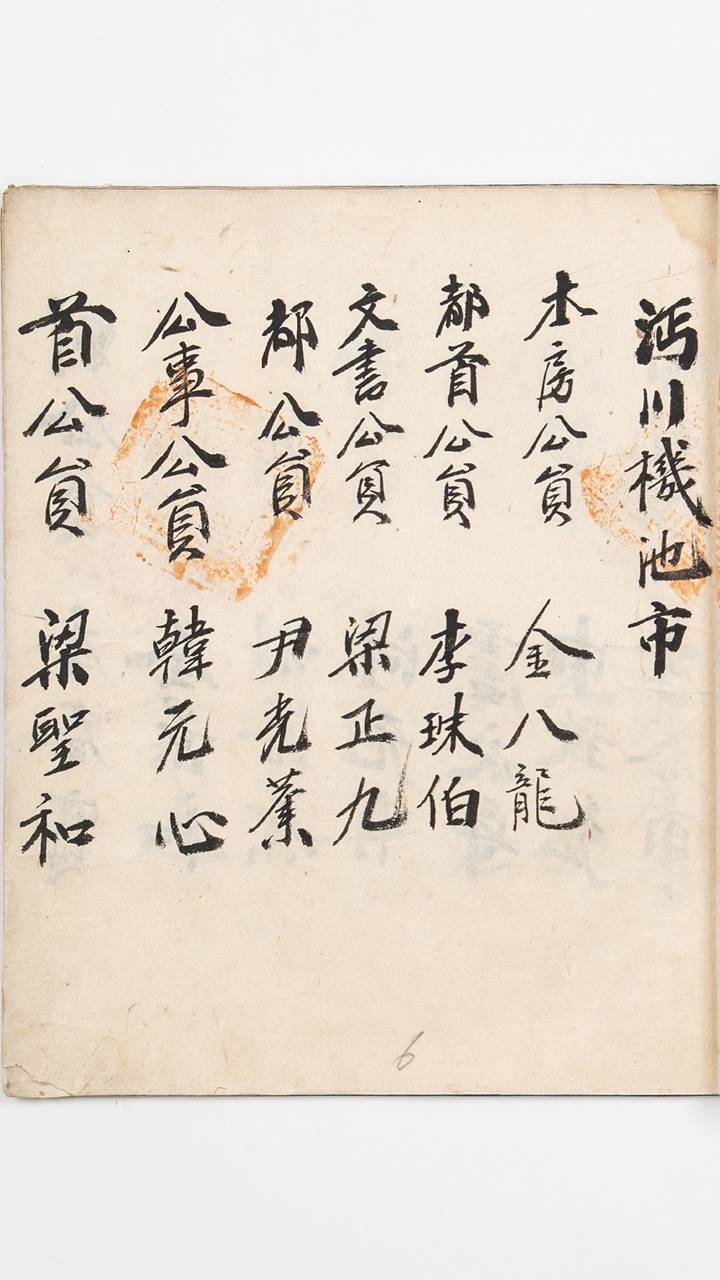 沔川機池市
本房公員 金八龍
都首公員 李珠伯
文書公員 梁正九
都公員 尹光業
公事公員 韓元心
首公員 梁聖和
6